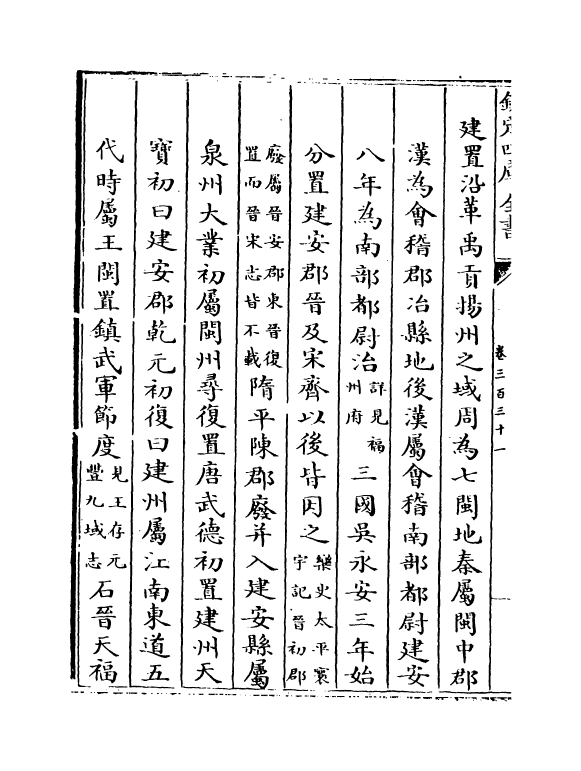 欽定四庫全書
卷三百三十一
建置沿革禹貢揚州之域周為七閩地秦屬閩中郡
漢為會稽郡冶縣地後漢屬會稽南部都尉建安
八年為南部都尉治詳見福州府三國吳永安三年始
分置建安郡晉及宋齊以後皆因之樂史太平寰宇記晉初郡
廢屬晉安郡東晉復置而晉宋志皆不載隋平陳郡廢并入建安縣屬
泉州大業初屬閩州尋復置唐武德初置建州天
寶初曰建安郡乾元初復曰建州屬江南東道五
代時屬王閩置鎮武軍節度見王存元豐九域志石晉天福